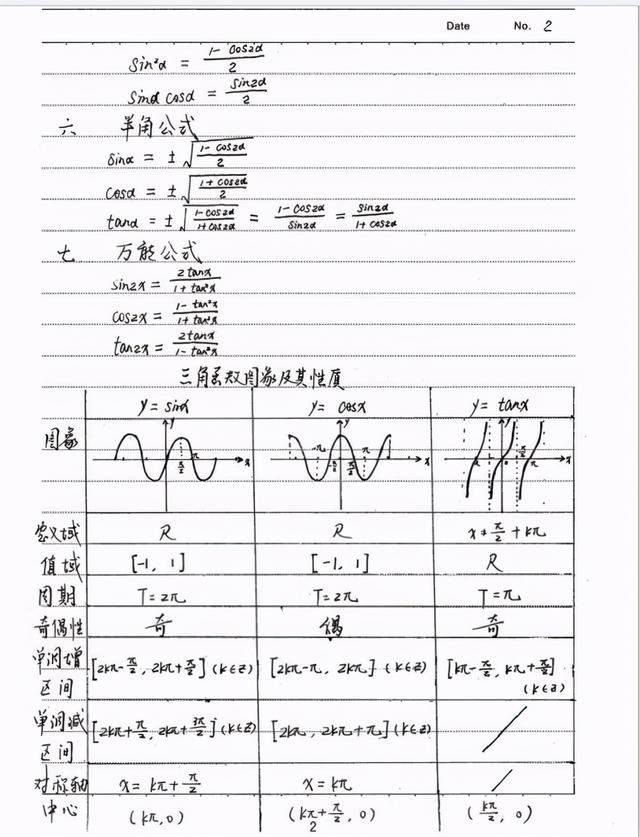 Date No. 2
sin²α = (1 - cos2α)/2
sinα cosα = sin2α/2
六 半角公式
sinα = ±√((1 - cos2α)/2)
cosα = ±√((1 + cos2α)/2)
tanα = ±√((1 - cos2α)/(1 + cos2α)) = (1 - cos2α)/sin2α = sin2α/(1 + cos2α)
七 万能公式
sin2x = 2tanx/(1 + tan²x)
cos2x = (1 - tan²x)/(1 + tan²x)
tan2x = 2tanx/(1 - tan²x)
三角函数图象及其性质
y = sinx y = cosx y = tanx
图象
定义域 R R x ≠ π/2 + kπ
值域 [-1, 1] [-1, 1] R
周期 T = 2π T = 2π T = π
奇偶性 奇 偶 奇
单调增区间 [2kπ - π/2, 2kπ + π/2] (k∈Z) [2kπ - π, 2kπ] (k∈Z) [kπ - π/2, kπ + π/2] (k∈Z)
单调减区间 [2kπ + π/2, 2kπ + 3π/2] (k∈Z) [2kπ, 2kπ + π] (k∈Z) /
对称轴 x = kπ + π/2 x = kπ /
中心 (kπ, 0) (kπ + π/2, 0) (kπ/2, 0)
2